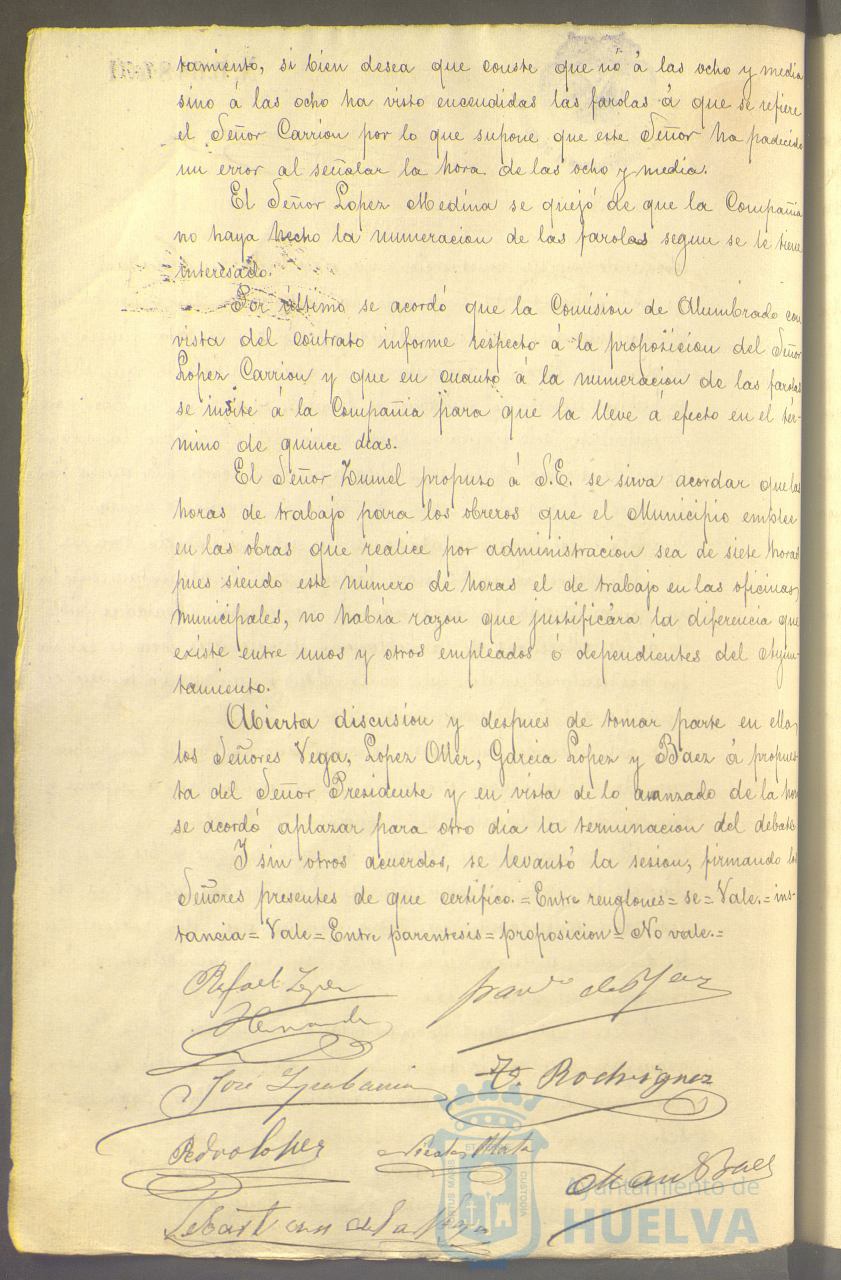 tamiento, si bien desea que conste que nó á las ocho y media
sino á las ocho ha visto encendidas las farolas á que se refiere
el Señor Carrion por lo que supone que este Señor ha padecido
un error al señalar la hora de las ocho y media.
El Señor Lopez Medina se quejó de que la Compañia
no haya hecho la numeracion de las farolas segun se le tiene
interesado.
Por último se acordó que la Comision de Alumbrado con
vista del contrato informe respecto á la proposicion del Señor
Lopez Carrion y que en cuanto á la numeracion de las farolas
se invite á la Compañia para que la lleve á efecto en el tér-
mino de quince dias.
El Señor Zumel propuso á S.E. se sirva acordar que las
horas de trabajo para los obreros que el Municipio emplee
en las obras que realice por administracion sea de siete horas
pues siendo este número de horas el de trabajo en las oficinas
municipales, no había razon que justificára la diferencia que
existe entre unos y otros empleados ó dependientes del Ayun-
tamiento.
Abierta discusion y despues de tomar parte en ella
los Señores Vega, Lopez Oller, Garcia Lopez y Baez á propues
ta del Señor Presidente y en vista de lo avanzado de la hora
se acordó aplazar para otro dia la terminacion del debate.
Y sin otros acuerdos, se levantó la sesion, firmando los
Señores presentes de que certifico.=Entre renglones=se=Vale.=ins-
tancia=Vale=Entre parentesis=proposicion=No vale.=
Rafael Lopez
Hernandez
José
Rodriguez
Pedro Lopez
Nicolas Mata
Man Baez
Sebastian de la Vega
Ayuntamiento de
HUELVA